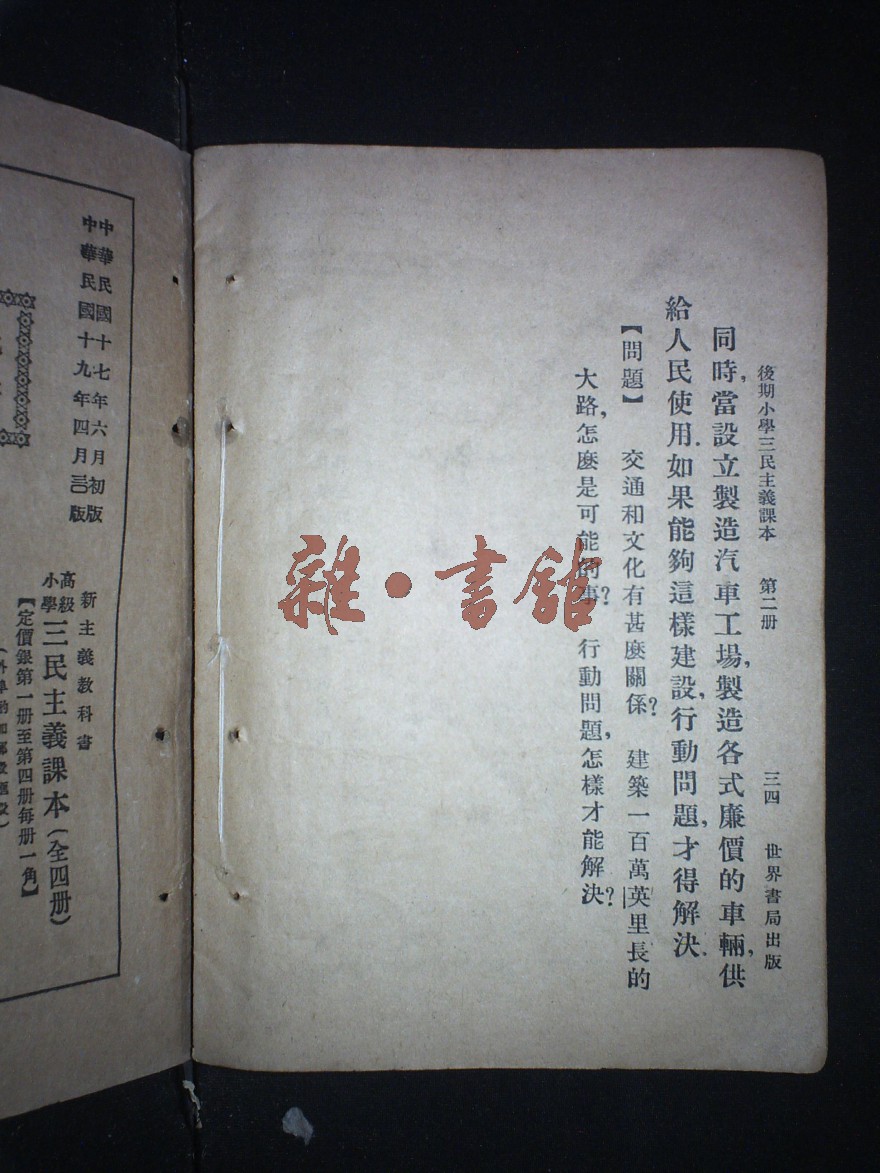 後期小學三民主義課本 第二册 三四 世界書局出版
同時,當設立製造汽車工場,製造各式廉價的車輛,供
給人民使用.如果能夠這樣建設,行動問題,才得解決.
【問題】 交通和文化有甚麼關係? 建築一百萬英里長的
大路,怎麼是可能的事? 行動問題,怎樣才能解決?
雜·書館
中華民國十七年六月初版
中華民國十九年四月三〇版
新主義教科書
高級小學三民主義課本(全四册)
【定價銀第一册至第四册每册一角】